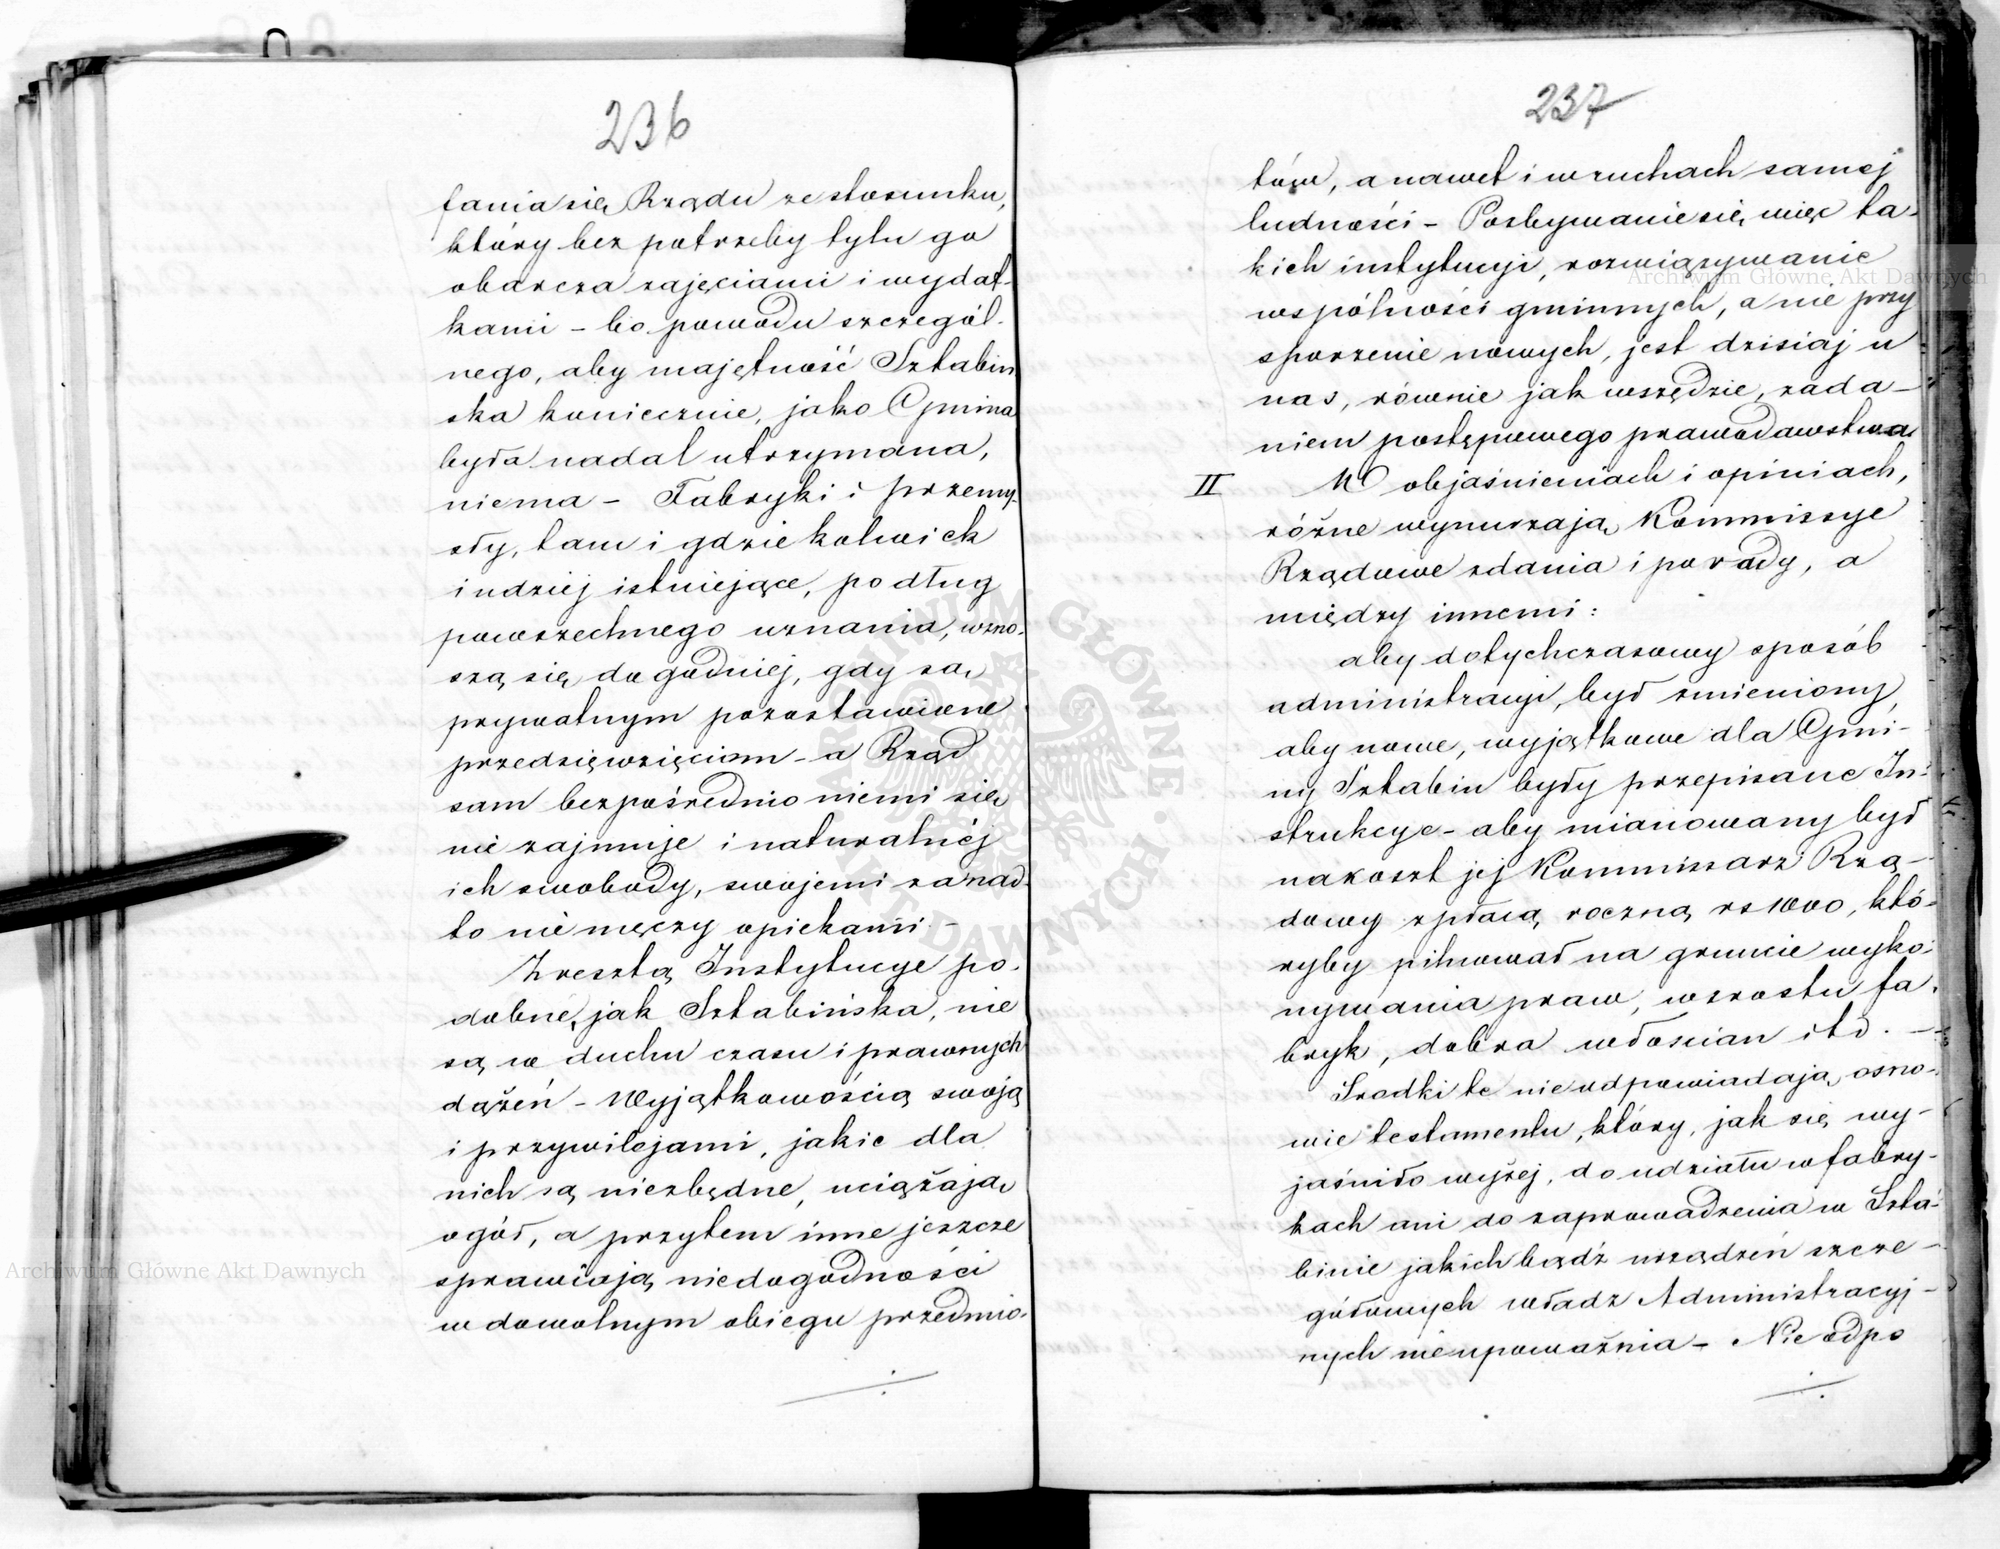 236
fania się Rządu ze stosunku,
który bez potrzeby tylu go
obarcza zajęciami i wydat-
kami – bo powodu szczegól-
nego, aby majętność Sztabin
ska koniecznie, jako Gmina
była nadal utrzymana,
niema – Fabryki i przemy-
sły, tam i gdziekolwiek
indziej istniejące, podług
powszechnego uznania, wzno-
szą się dogodniej, gdy są
prywatnym pozostawione
przedsięwzięciom – a Rząd
sam bezpośrednio niemi się
nie zajmuje i naturalnéj
ich swobody, swojemi zanad-
to nie męczy opiekami. –
Zresztą Instytucye po-
dobne, jak Sztabińska, nie
są w duchu czasu i prawnych
dążeń – Wyjątkowością swoją
i przywilejami, jakie dla
nich są niezbędne, uciążają
ogół, a przytem inne jeszcze
sprawiają niedogodności
w dowolnym obiegu przedmio-
237
tów, a nawet i w ruchach samej
ludności – Pozbywanie się więc ta-
kich instytucyi, rozwiązywanie
wspólności gminnych, a nie przy
sporzenie nowych, jest dzisiaj u
nas, równie jak wszędzie, zada-
niem postępowego prawodawstwa
II W objaśnieniach i opiniach,
różne wynurzają Kommissye
Rządowe zdania i porady, a
między innemi:
aby dotychczasowy sposób
administracyi, był zmieniony,
aby nowe, wyjątkowe dla Gmi-
ny Sztabin były przepisane In-
strukcye – aby mianowany był
na koszt jej Kommissarz Rzą-
dowy z płacą roczną rs 1000, któ-
ryby pilnował na gruncie wyko-
nywania praw, wzrostu fa-
bryk, dobra włościan itd. –
Środki te nie odpowiadają osno-
wie testamentu, który, jak się wy-
jaśniło wyżej, do udziału w fabry-
kach ani do zaprowadzenia w Szta-
binie jakichbądź urządzeń szcze-
gółowych władz Administracyj-
nych nie upoważnia – Nie odpo